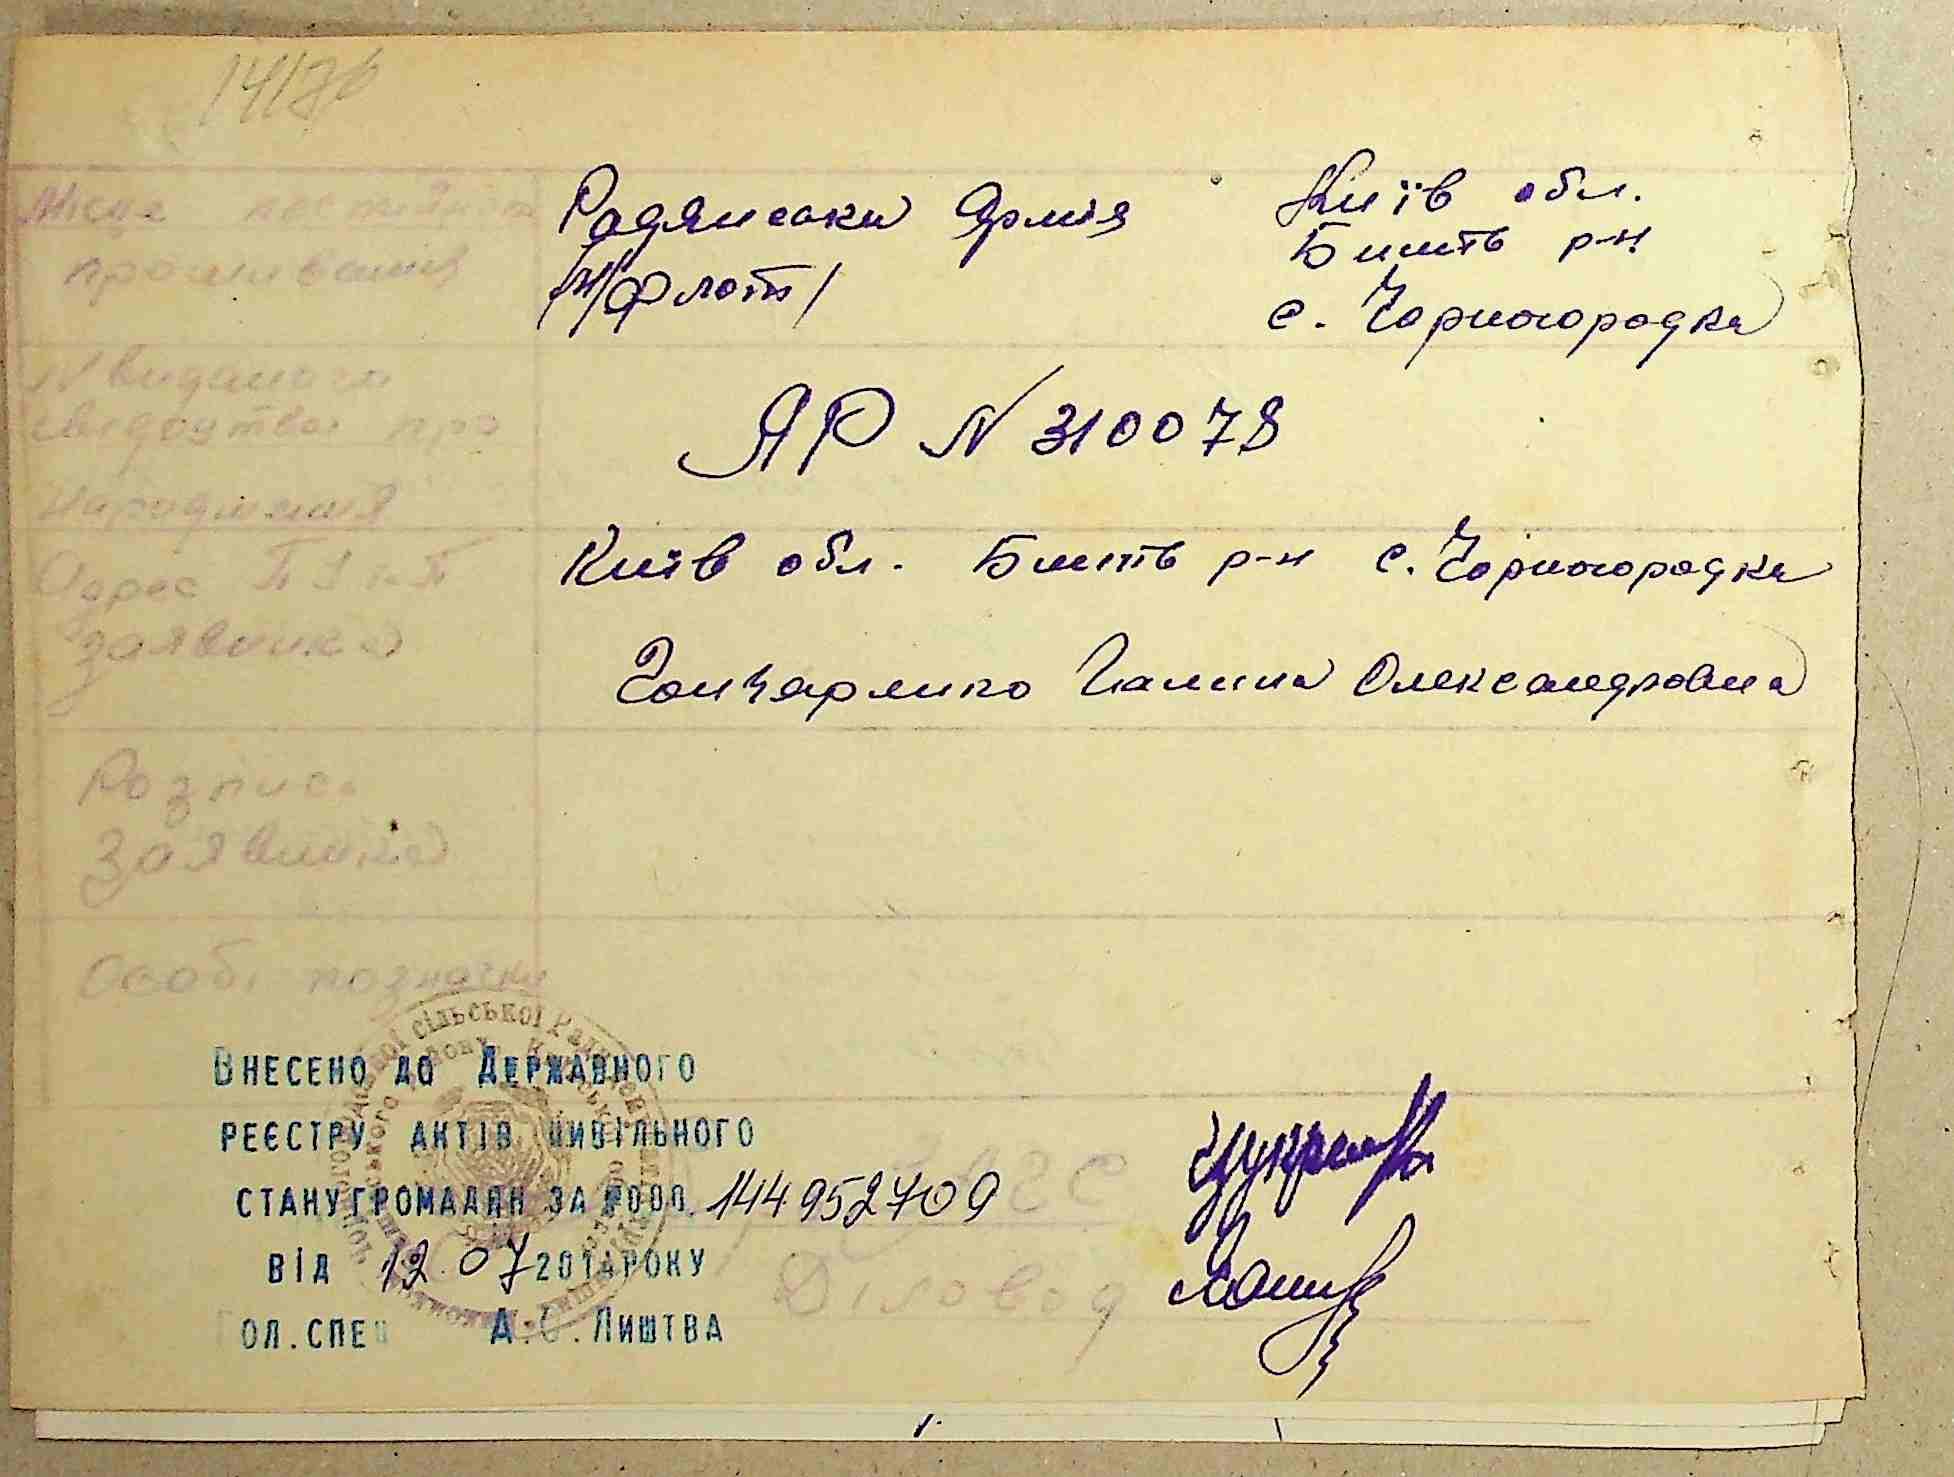 Місце постійного
проживання
Радянська Армія
/Ч/флот/
Київ обл.
Бишів р-н
с. Чорногородка
N виданого
свідоцтва про
народження
ЯР N 310078
Адрес П І к П
заявника
Київ обл. Бишів р-н с. Чорногородка
Гончаренко Галина Олександровна
Розпис
заявника
Особі позначки
ВНЕСЕНО ДО ДЕРЖАВНОГО
РЕЄСТРУ АКТІВ ЦИВІЛЬНОГО
СТАНУ ГРОМАДЯН ЗА №000. 144952709
ВІД 12.07 201 РОКУ
ГОЛ.СПЕЦ А. . ЛИШТВА
сільської Ради
ЗАГС
Діловод